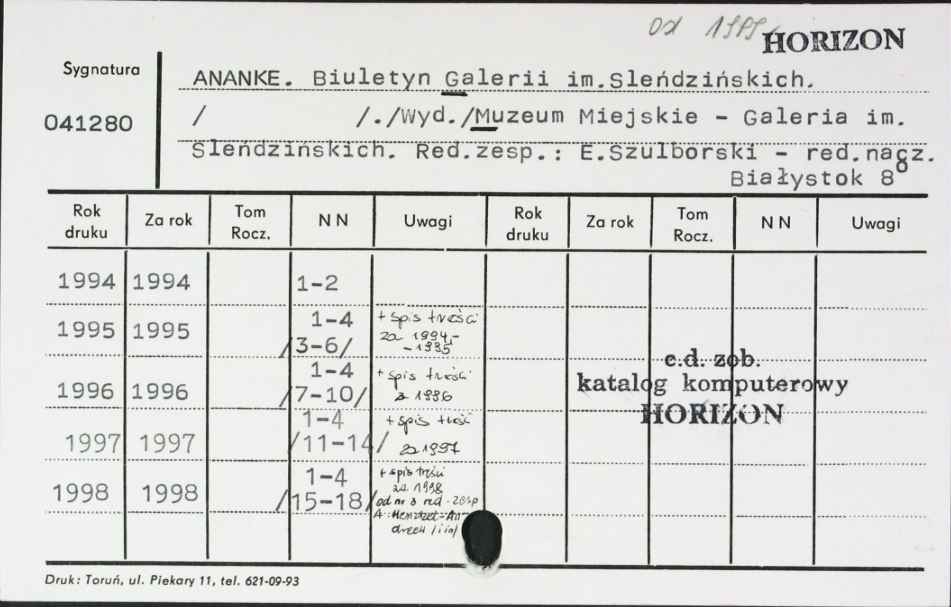 od 1999 HORIZON
Sygnatura
041280
ANANKE. Biuletyn Galerii im.Sleńdzińskich.
/ /./Wyd./Muzeum Miejskie – Galeria im.
Sleńdzińskich. Red.zesp.: E.Szulborski – red.nacz.
Białystok 8°
Rok druku Za rok Tom Rocz. N N Uwagi Rok druku Za rok Tom Rocz. N N Uwagi
1994 1994 1-2
1995 1995 1-4 /3-6/ + spis treści za 1994-1995
1996 1996 1-4 /7-10/ + spis treści za 1996
1997 1997 1-4 /11-14/ + spis treści za 1997
1998 1998 1-4 /15-18/ + spis treści za 1998 od nr 3 red. zesp. A.
c.d. zob.
katalog komputerowy
HORIZON
Druk: Toruń, ul. Piekary 11, tel. 621-09-93